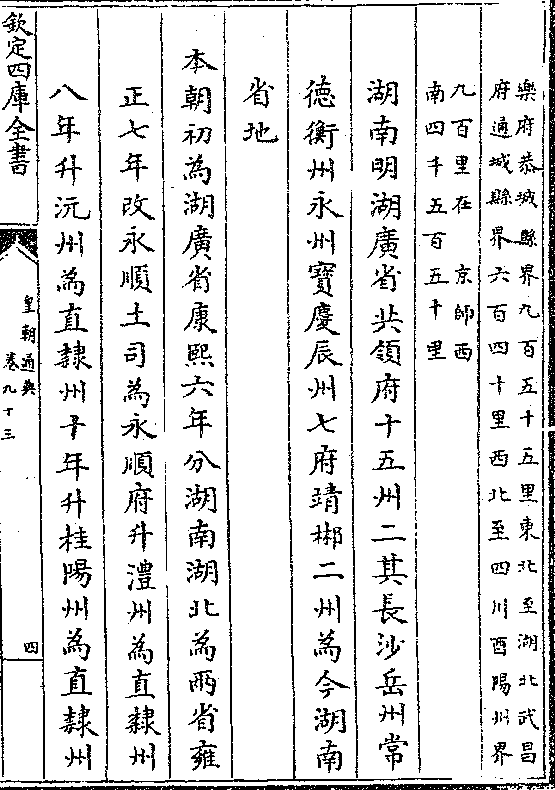 樂府恭城縣界九百五十五里東北至湖北武昌
府通城縣界六百四十里西北至四川酉陽州界
九百里在 京師西
南四千五百五十里
湖南明湖廣省共領府十五州二其長沙岳州常
德衡州永州寶慶辰州七府靖郴二州為今湖南
省地
本朝初為湖廣省康熙六年分湖南湖北為兩省雍
正七年改永順土司為永順府升澧州為直隸州
八年升沅州為直隸州十年升桂陽州為直隸州
欽定四庫全書
皇朝通典
卷九十三
四